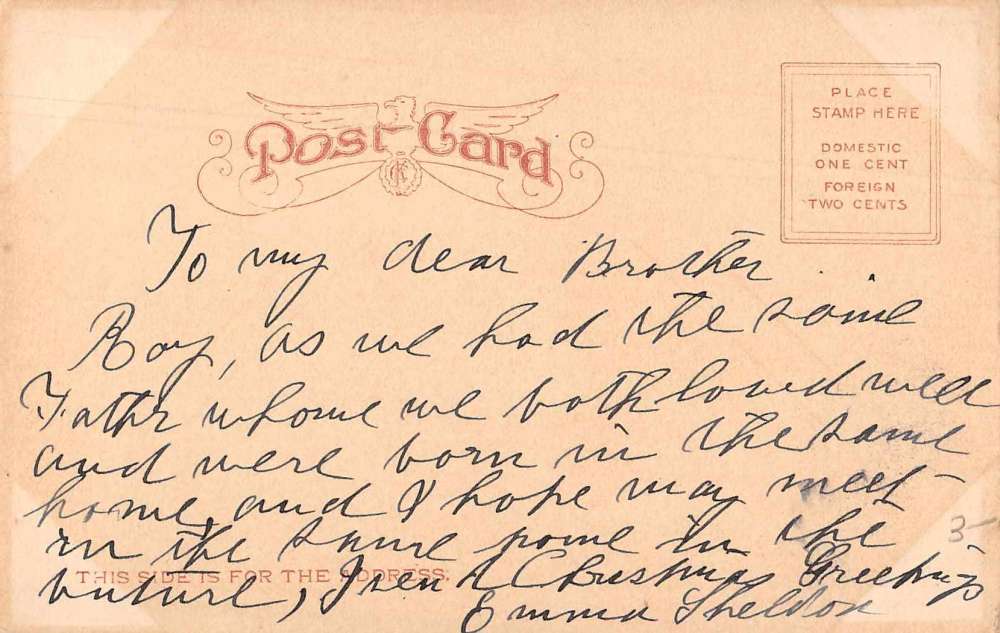 Post Card
PLACE
STAMP HERE
DOMESTIC
ONE CENT
FOREIGN
TWO CENTS
To my dear Brother
Roy, as we had the same
Father whome we both loved well
and were born in the same
home, and I hope may meet
in the same home in the
THIS SIDE IS FOR THE ADDRESS.
future, I sen d Christmas Greetings
Emma Sheldon
3